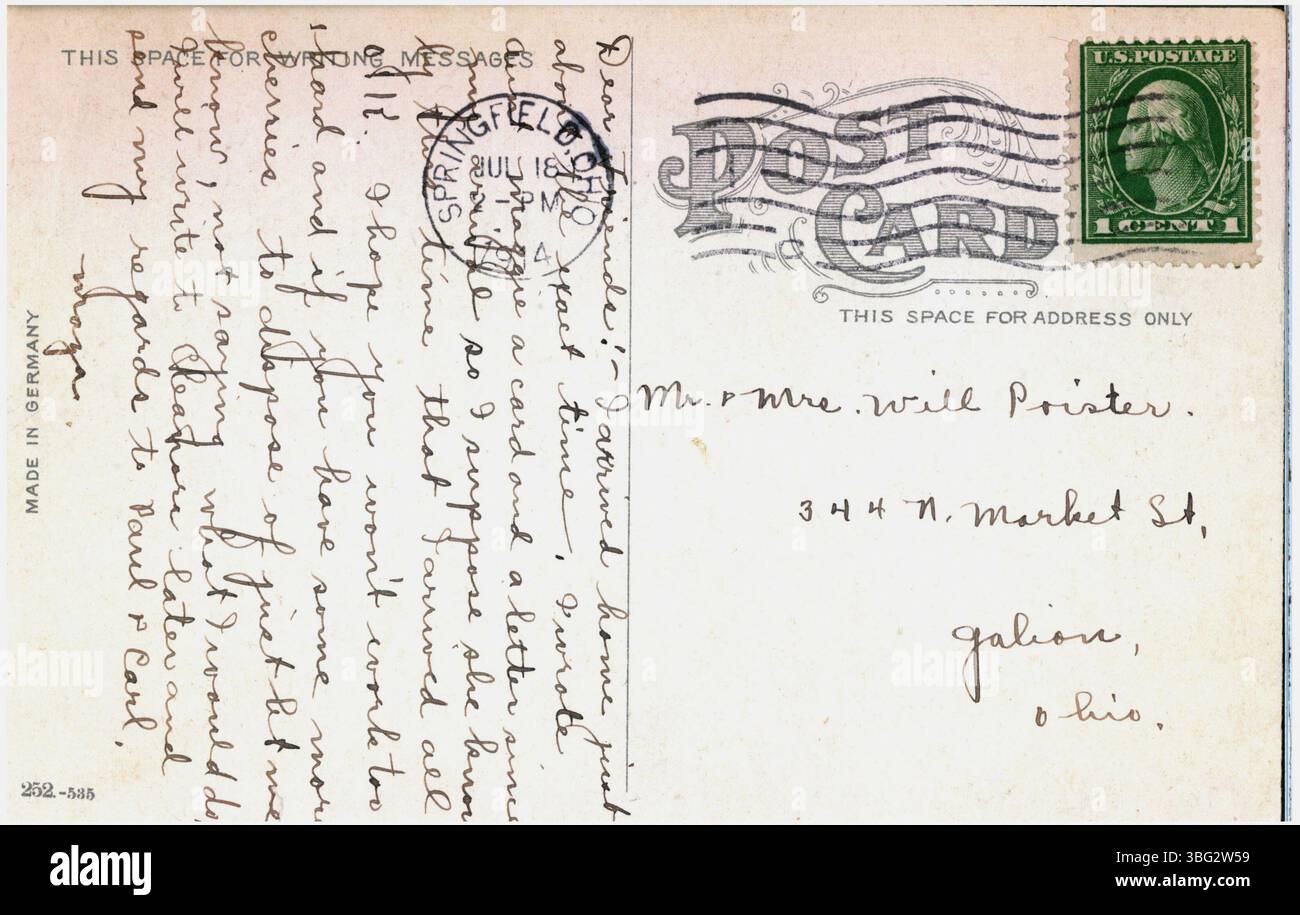 THIS SPACE FOR WRITING MESSAGES
Dear Friends:- I arrived home just
about the exact time. I wrote
a card and a letter since
so I suppose she knows
by the time that I arrived all
I hope you won't work too
hard and if you have some more
cherries to dispose of just let me
know, not saying what I would do,
I will write to later and
send my regards to Paul & Carl.
MADE IN GERMANY
252.-535
SPRINGFIELD, OHIO
JUL 18
POST
CARD
U.S. POSTAGE
1 CENT 1
THIS SPACE FOR ADDRESS ONLY
Mr. & Mrs. Will Poister.
344 N. Market St,
Galion,
Ohio.
alamy
Image ID: 3BG2W59
www.alamy.com